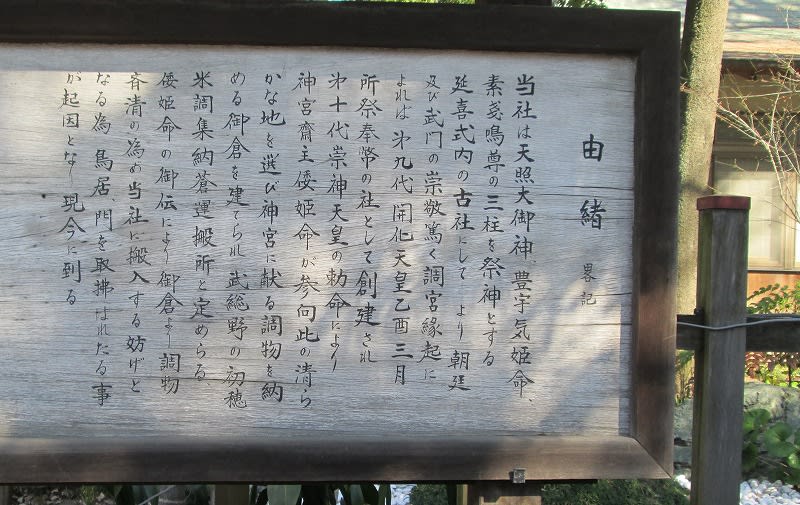 由緒 畧記
当社は天照大御神、豊宇気姫命、
素戔鳴尊の三柱を祭神とする
延喜式内の古社にして より朝廷
及び武門の崇敬篤く調宮縁起に
よれば 㐧九代開化天皇乙酉三月
所祭奉幣の社として創建され
㐧十代崇神天皇の勅命により
神宮齋主倭姫命が参向此の清ら
かな地を選び神宮に献る調物を納
める御倉を建てられ武総野の初穂
米調集納蒼運搬所と定めらる
倭姫命の御伝により御倉より調物
斉清の為め当社に搬入する妨げと
なる為 鳥居、門を取拂はれたる事
が起因となり現今に到る